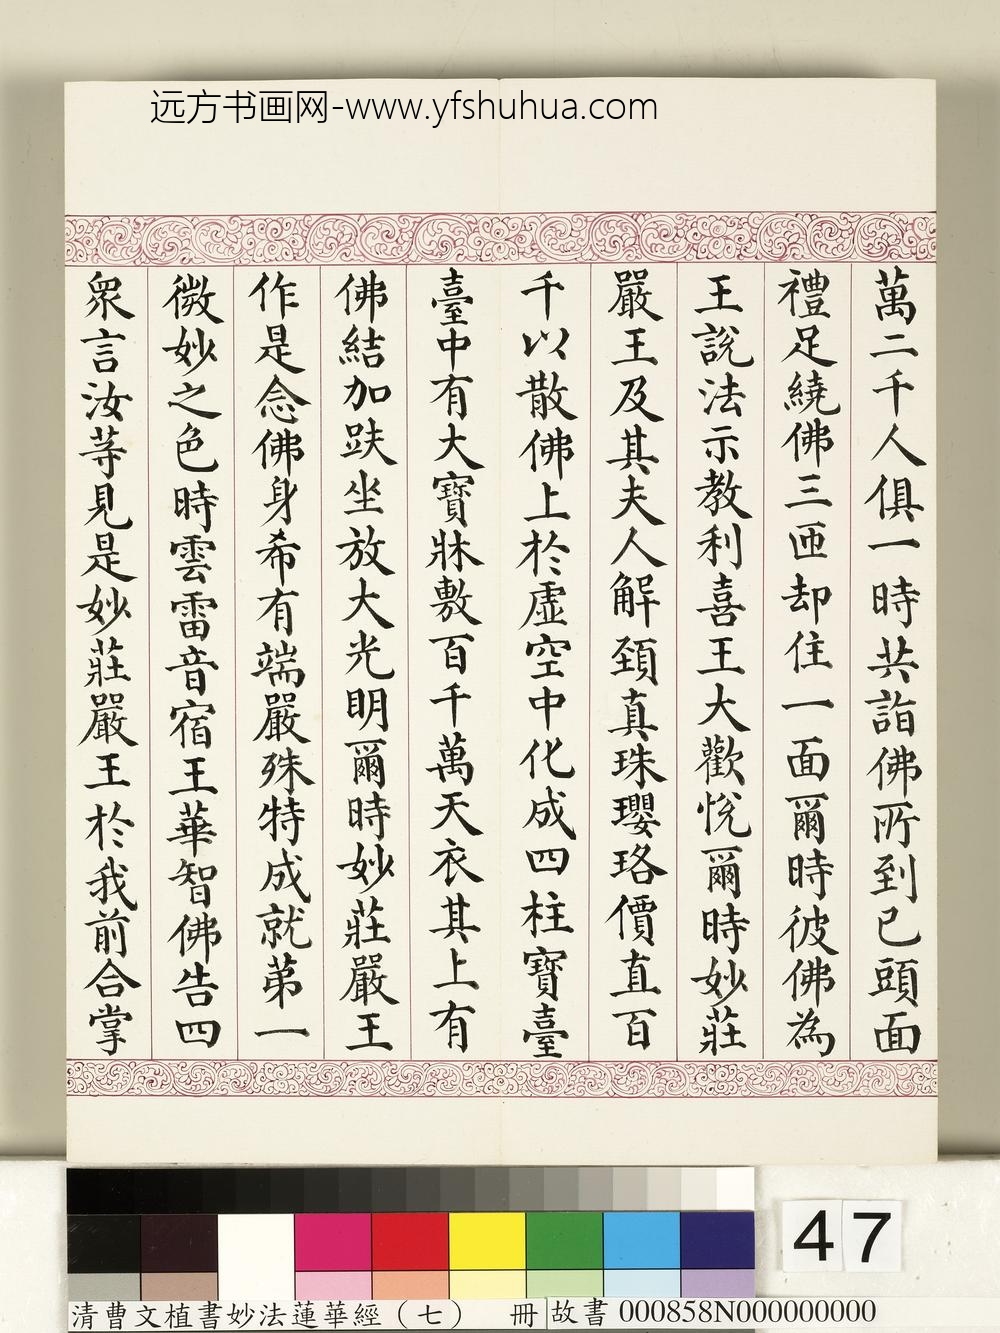 远方书画网-www.yfshuhua.com
萬二千人俱一時共詣佛所到已頭面
禮足繞佛三匝却住一面爾時彼佛為
王說法示教利喜王大歡悅爾時妙莊
嚴王及其夫人解頸真珠瓔珞價直百
千以散佛上於虛空中化成四柱寶臺
臺中有大寶牀敷百千萬天衣其上有
佛結加趺坐放大光明爾時妙莊嚴王
作是念佛身希有端嚴殊特成就第一
微妙之色時雲雷音宿王華智佛告四
眾言汝等見是妙莊嚴王於我前合掌
47
清曹文植書妙法蓮華經（七） 冊 故書 000858N000000000